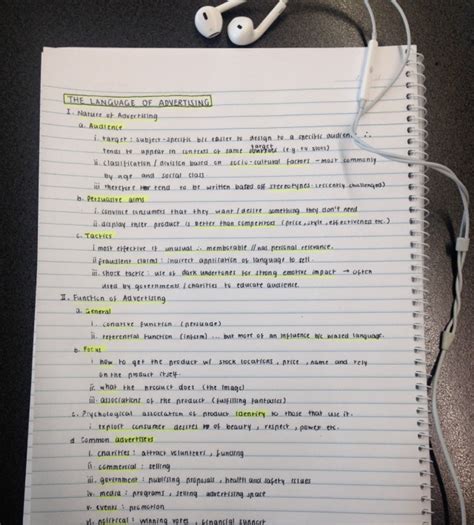 THE LANGUAGE OF ADVERTISING
I. Nature of Advertising
a. Audience
i. target : subject-specific b/c easier to design to a specific audien. ∴
tends to appear in contexts of same target (e.g. tv slots)
ii. classification / division based on socio-cultural factors - most commonly
by age and social class
iii. therefore tend to be written based off stereotypes (recently challenged)
b. Persuasive aims
i. convince consumers that they want / desire something they don't need
ii. display their product is better than competitors (price, style, effectiveness etc.)
c. Tactics
i. most effective is unusual ∴ memorable // has personal relevance.
ii. fraudulent claims : incorrect application of language to sell.
iii. shock tactic : use of dark undertones for strong emotive impact → often
used by governments / charities to educate audience.
II. Function of Advertising
a. General
i. conative function (persuade)
ii. referential function (inform) ... but more of an influence b/c biased language.
b. Focus
i. how to get the product w/ stock locations, price, name and rely
on the product itself.
ii. what the product does (the image)
iii. associations of the product (fulfilling fantasies)
c. Psychological association of product identity to those that use it.
i. exploit consumer desires of beauty, respect, power etc.
d. Common advertisers
i. charities : attract volunteers, funding
ii. commercial : selling
iii. government : publicising proposals, health and safety issues
iv. media : programs, selling advertising space
v. events : promotion
political : winning votes, financial support